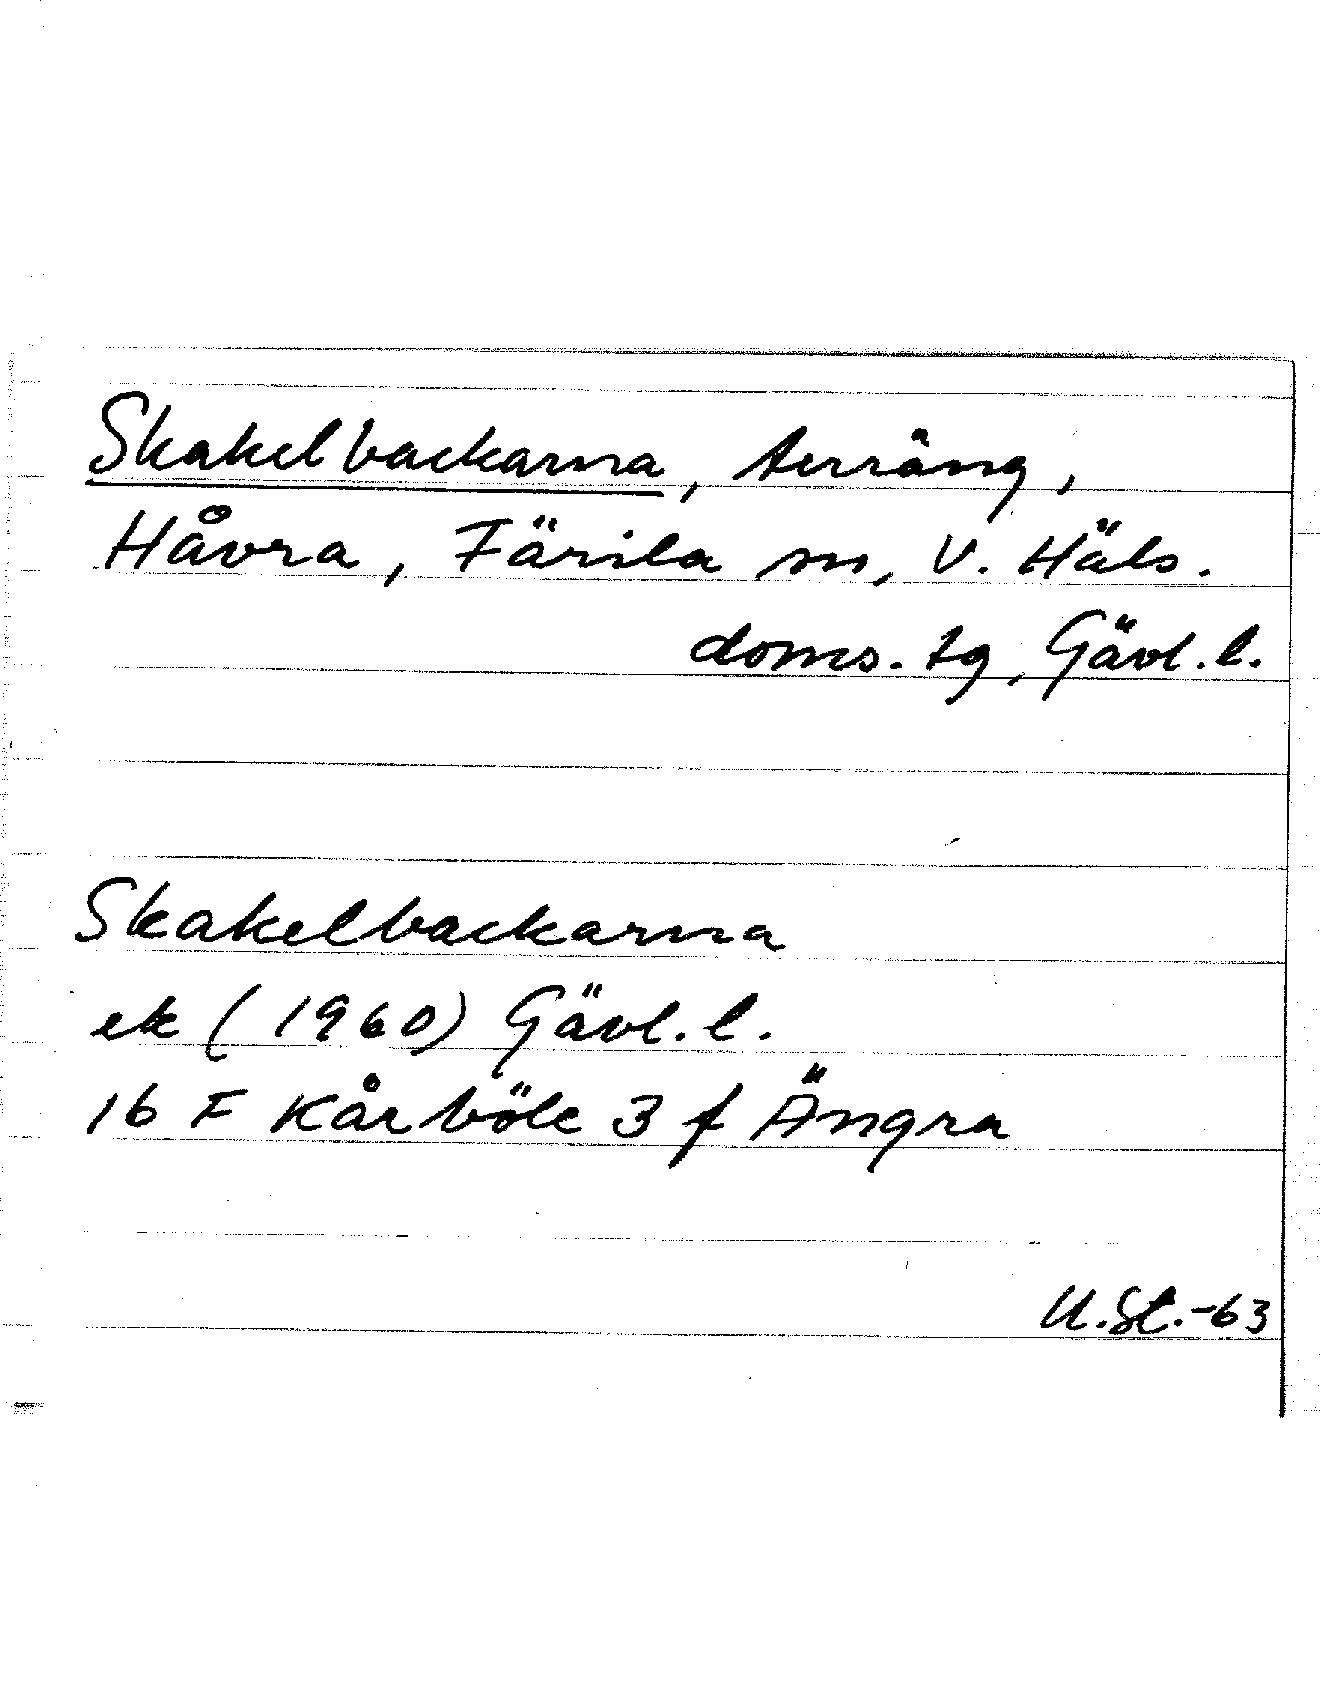 Skakelbackarna, terräng,
Håvra, Färila sn, V. Häls.
doms. tg, Gävl.l.
Skakelbackarna
ek (1960) Gävl.l.
16 F Kårböle 3 f Ängra
U.St.-63